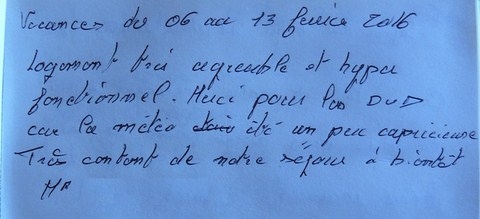 Vacances du 06 au 13 février 2016
Logement très agréable et hyper
fonctionnel. Merci pour les DVD
car la météo était été un peu capricieuse
Très content de notre séjour à bientôt